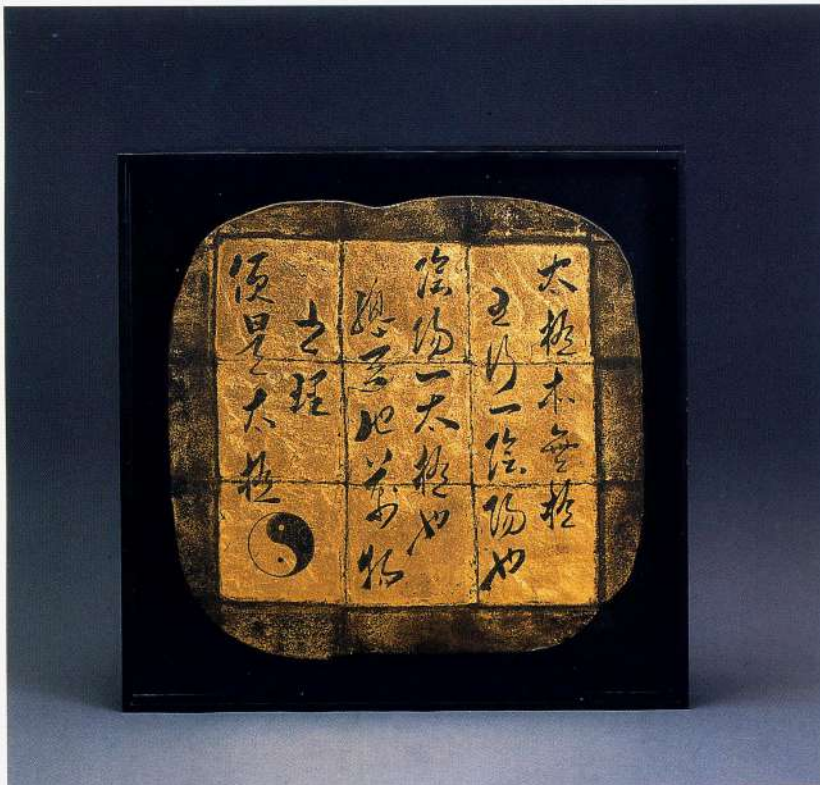 太極本無極
五行一陰陽也
陰陽一太極也
總天地萬物
之理
便是太極